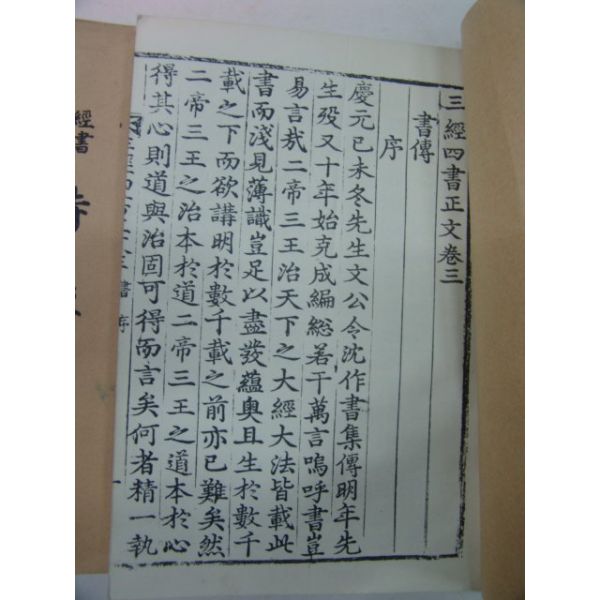 三經四書正文卷三
書傳
序
慶元已未冬先生文公令沈作書集傳明年先
生歿又十年始克成編総若干萬言嗚呼書豈
易言㦲二帝三王治天下之大經大法皆載此
書而淺見薄識豈足以盡發蘊奧且生於數千
載之下而欲講明於數千載之前亦已難矣然
二帝三王之治本於道二帝三王之道本於心
得其心則道與治固可得而言矣何者精一執
書序
經書